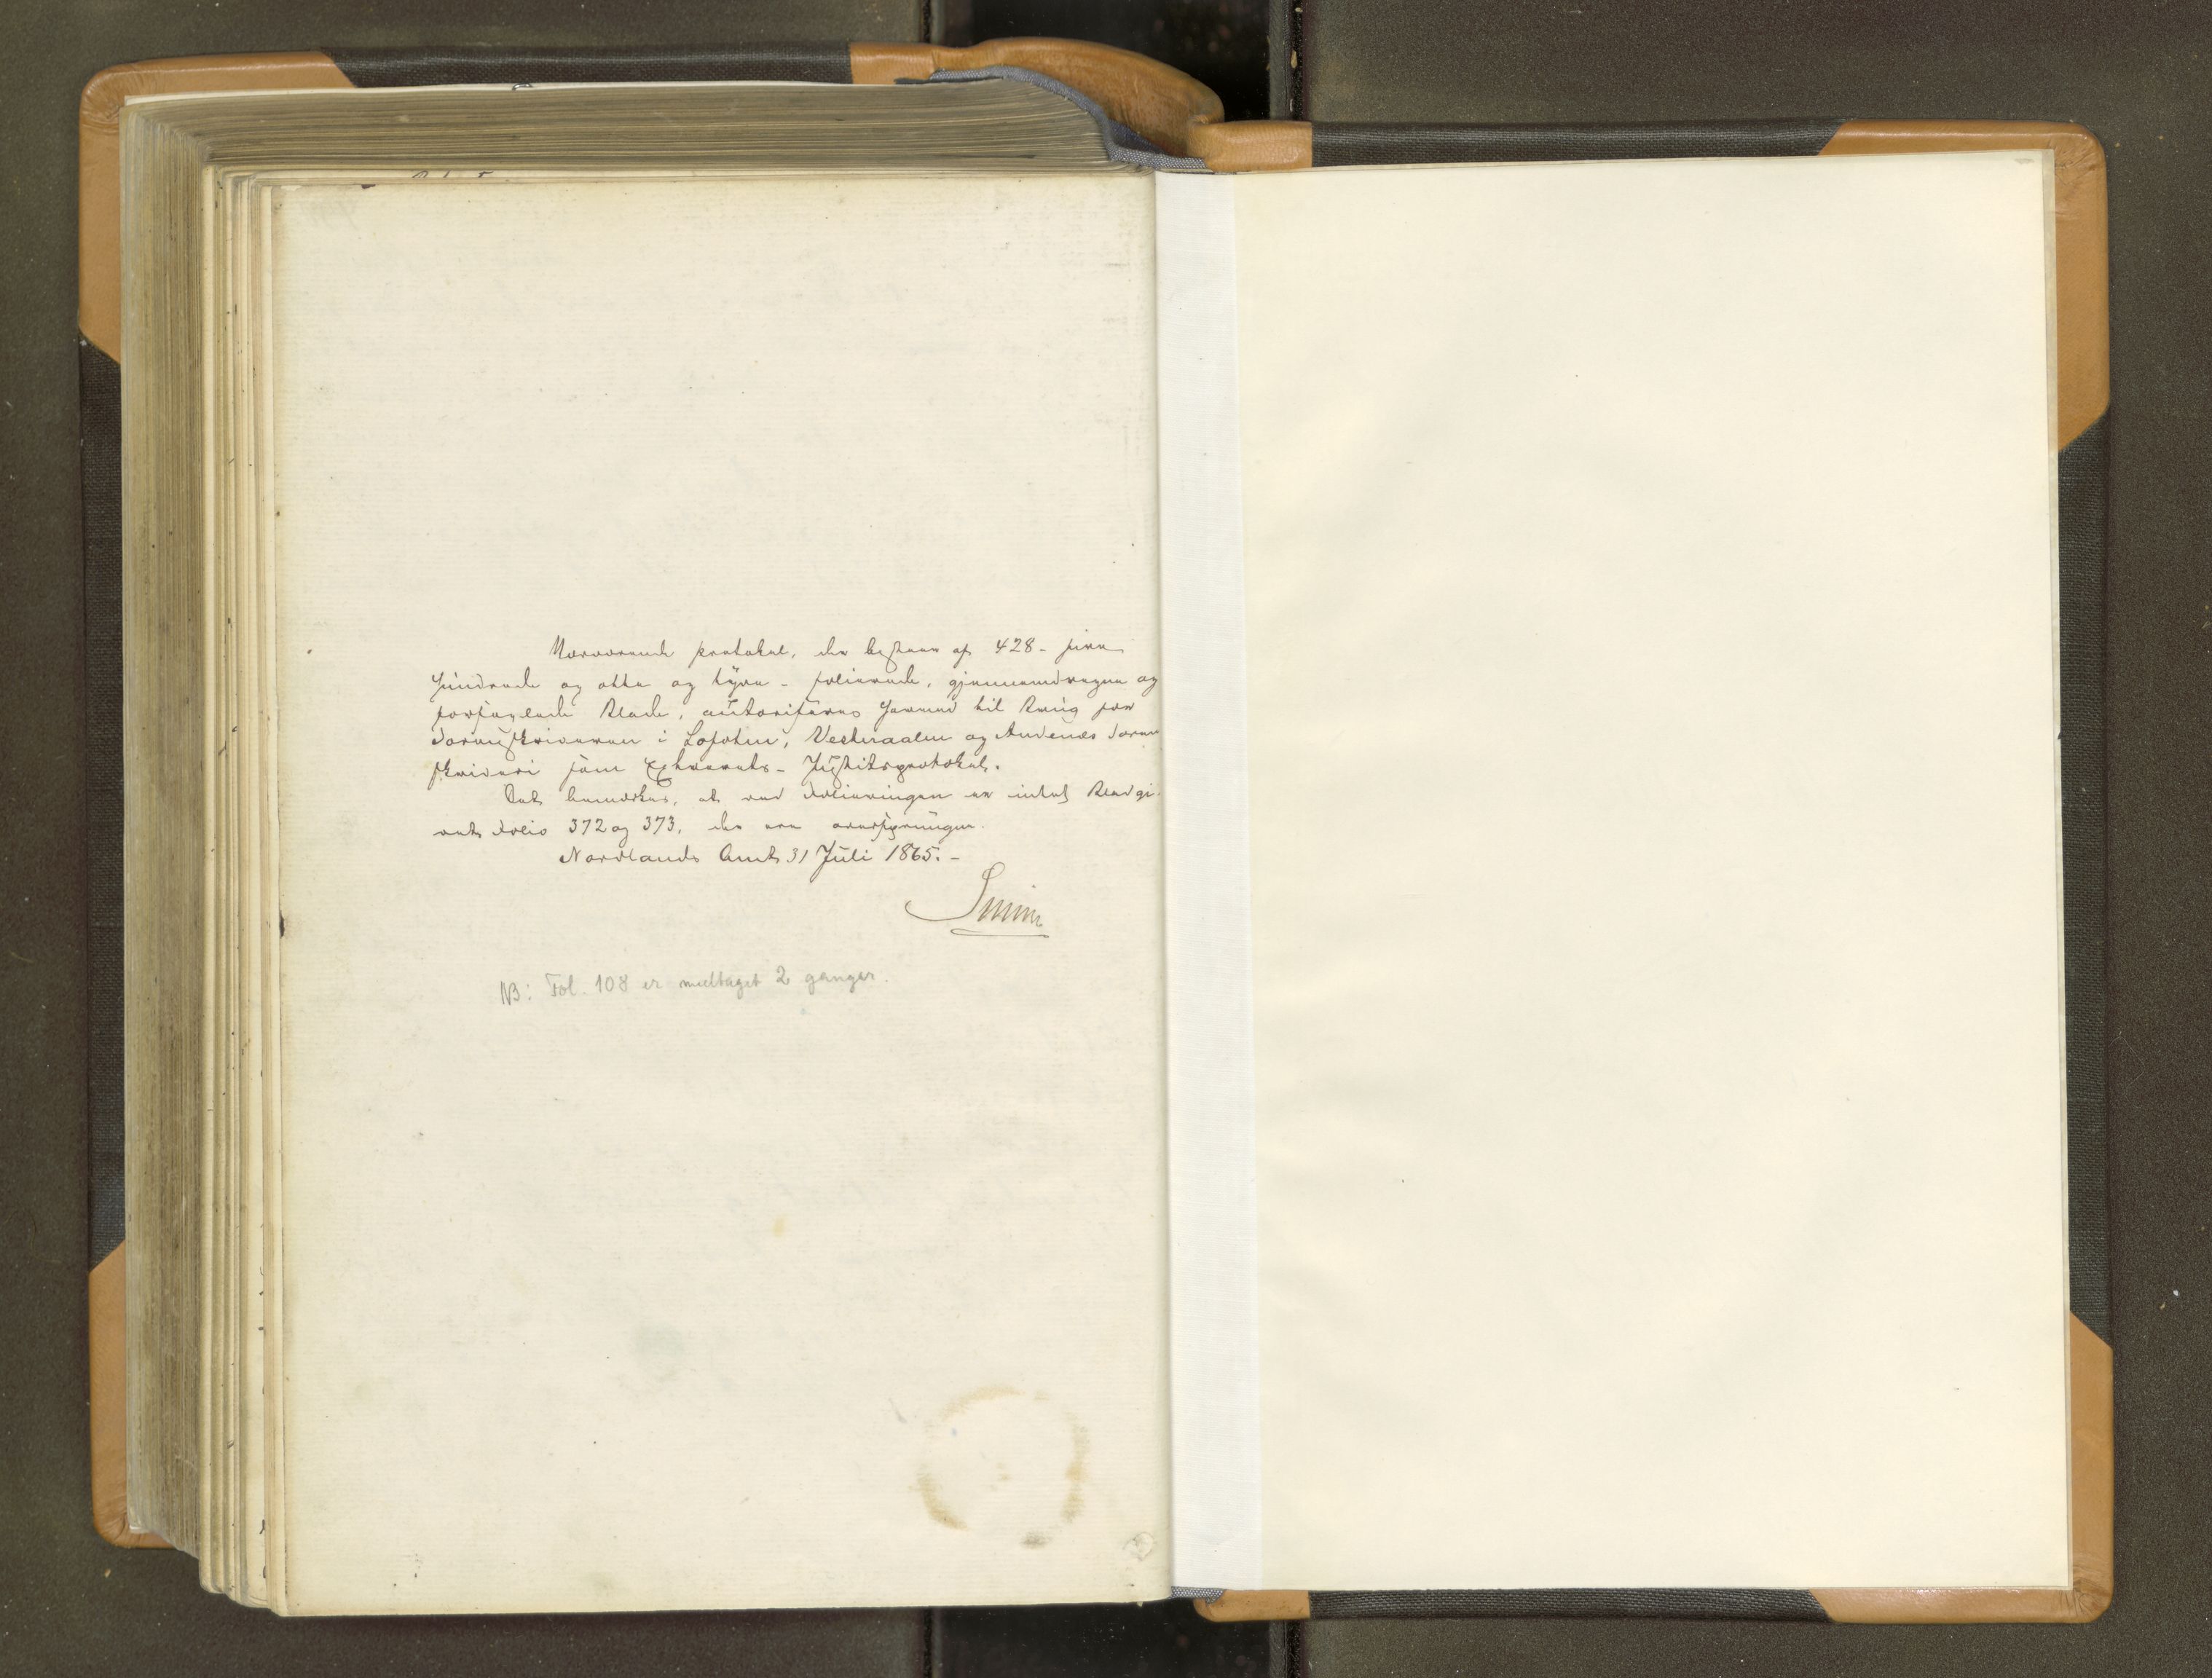 Nærværende protokol, der bestaar af 428 - fire
hundrede og otte og tyve - folierede, gjennemdragne og
forseglede Blade, autoriseres herved til Brug for
Sorenskriveren i Lofoten, Vesteraalen og Andenæs Soren
skriveri som Extrarets- Justitsprotokol.
Det bemærkes, at ved Folieringen er intet Blad gi-
vet Folio 372 og 373, der ere oversprungne.
Nordlands Amt 31 Juli 1865. -
NB: Fol. 108 er medtaget 2 ganger.